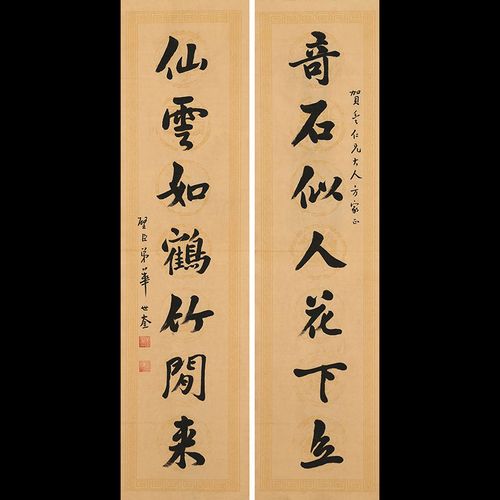 奇石似人花下立
賀氏仁兄大人方家正
仙雲如鶴竹間来
璧臣弟華世奎